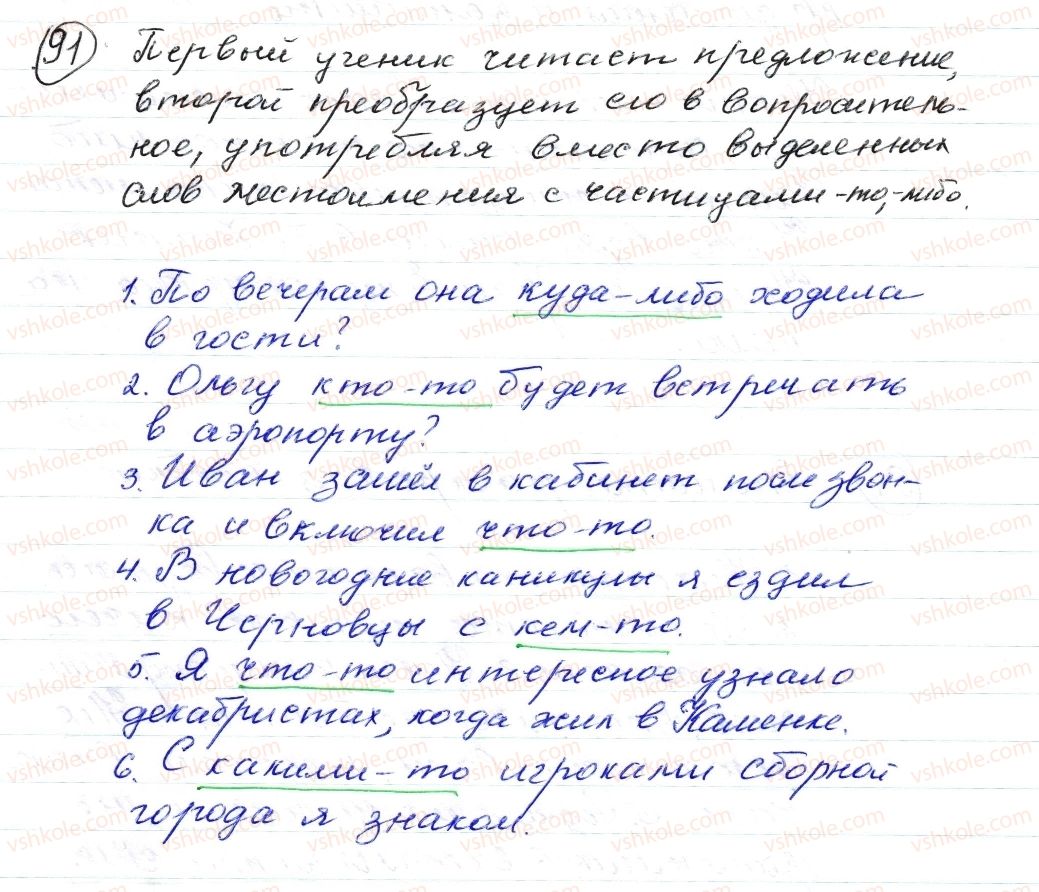 91 Первый ученик читает предложение,
второй преобразует его в вопроситель-
ное, употребляя вместо выделенных
слов местоимения с частицами -то, -либо.
1. По вечерам она куда-либо ходила
в гости?
2. Ольгу кто-то будет встречать
в аэропорту?
3. Иван зашёл в кабинет после звон-
ка и включил что-то.
4. В новогодние каникулы я ездил
в Черновцы с кем-то.
5. Я что-то интересное узнал о
декабристах, когда жил в Каменке.
6. С какими-то игроками сборной
города я знаком.